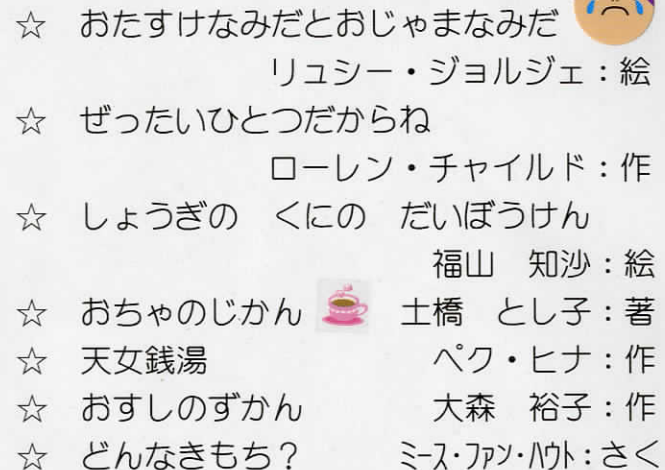 ☆ おたすけなみだとおじゃまなみだ
リュシー・ジョルジェ：絵
☆ ぜったいひとつだからね
ローレン・チャイルド：作
☆ しょうぎの くにの だいぼうけん
福山 知沙：絵
☆ おちゃのじかん 土橋 とし子：著
☆ 天女銭湯 ペク・ヒナ：作
☆ おすしのずかん 大森 裕子：作
☆ どんなきもち？ ミース・ファン・ハウト：さく